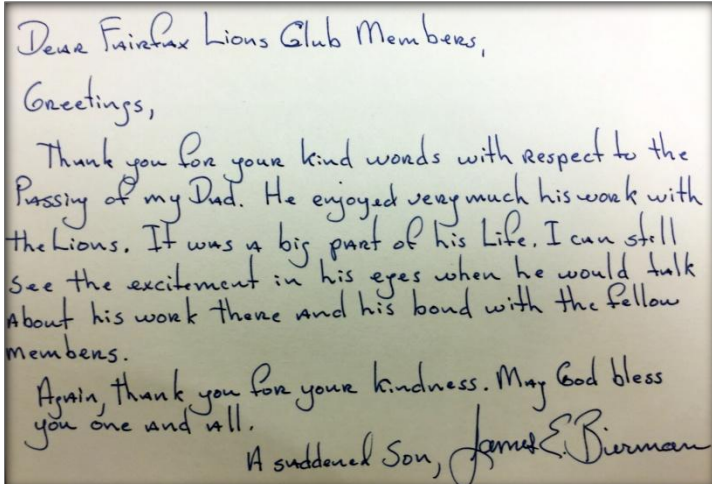 Dear Fairfax Lions Club Members,
Greetings,
Thank you for your kind words with respect to the
Passing of my Dad. He enjoyed very much his work with
the Lions. It was a big part of his Life. I can still
see the excitement in his eyes when he would talk
about his work there and his bond with the fellow
members.
Again, thank you for your kindness. May God bless
you one and all.
A saddened Son, James E. Bierman